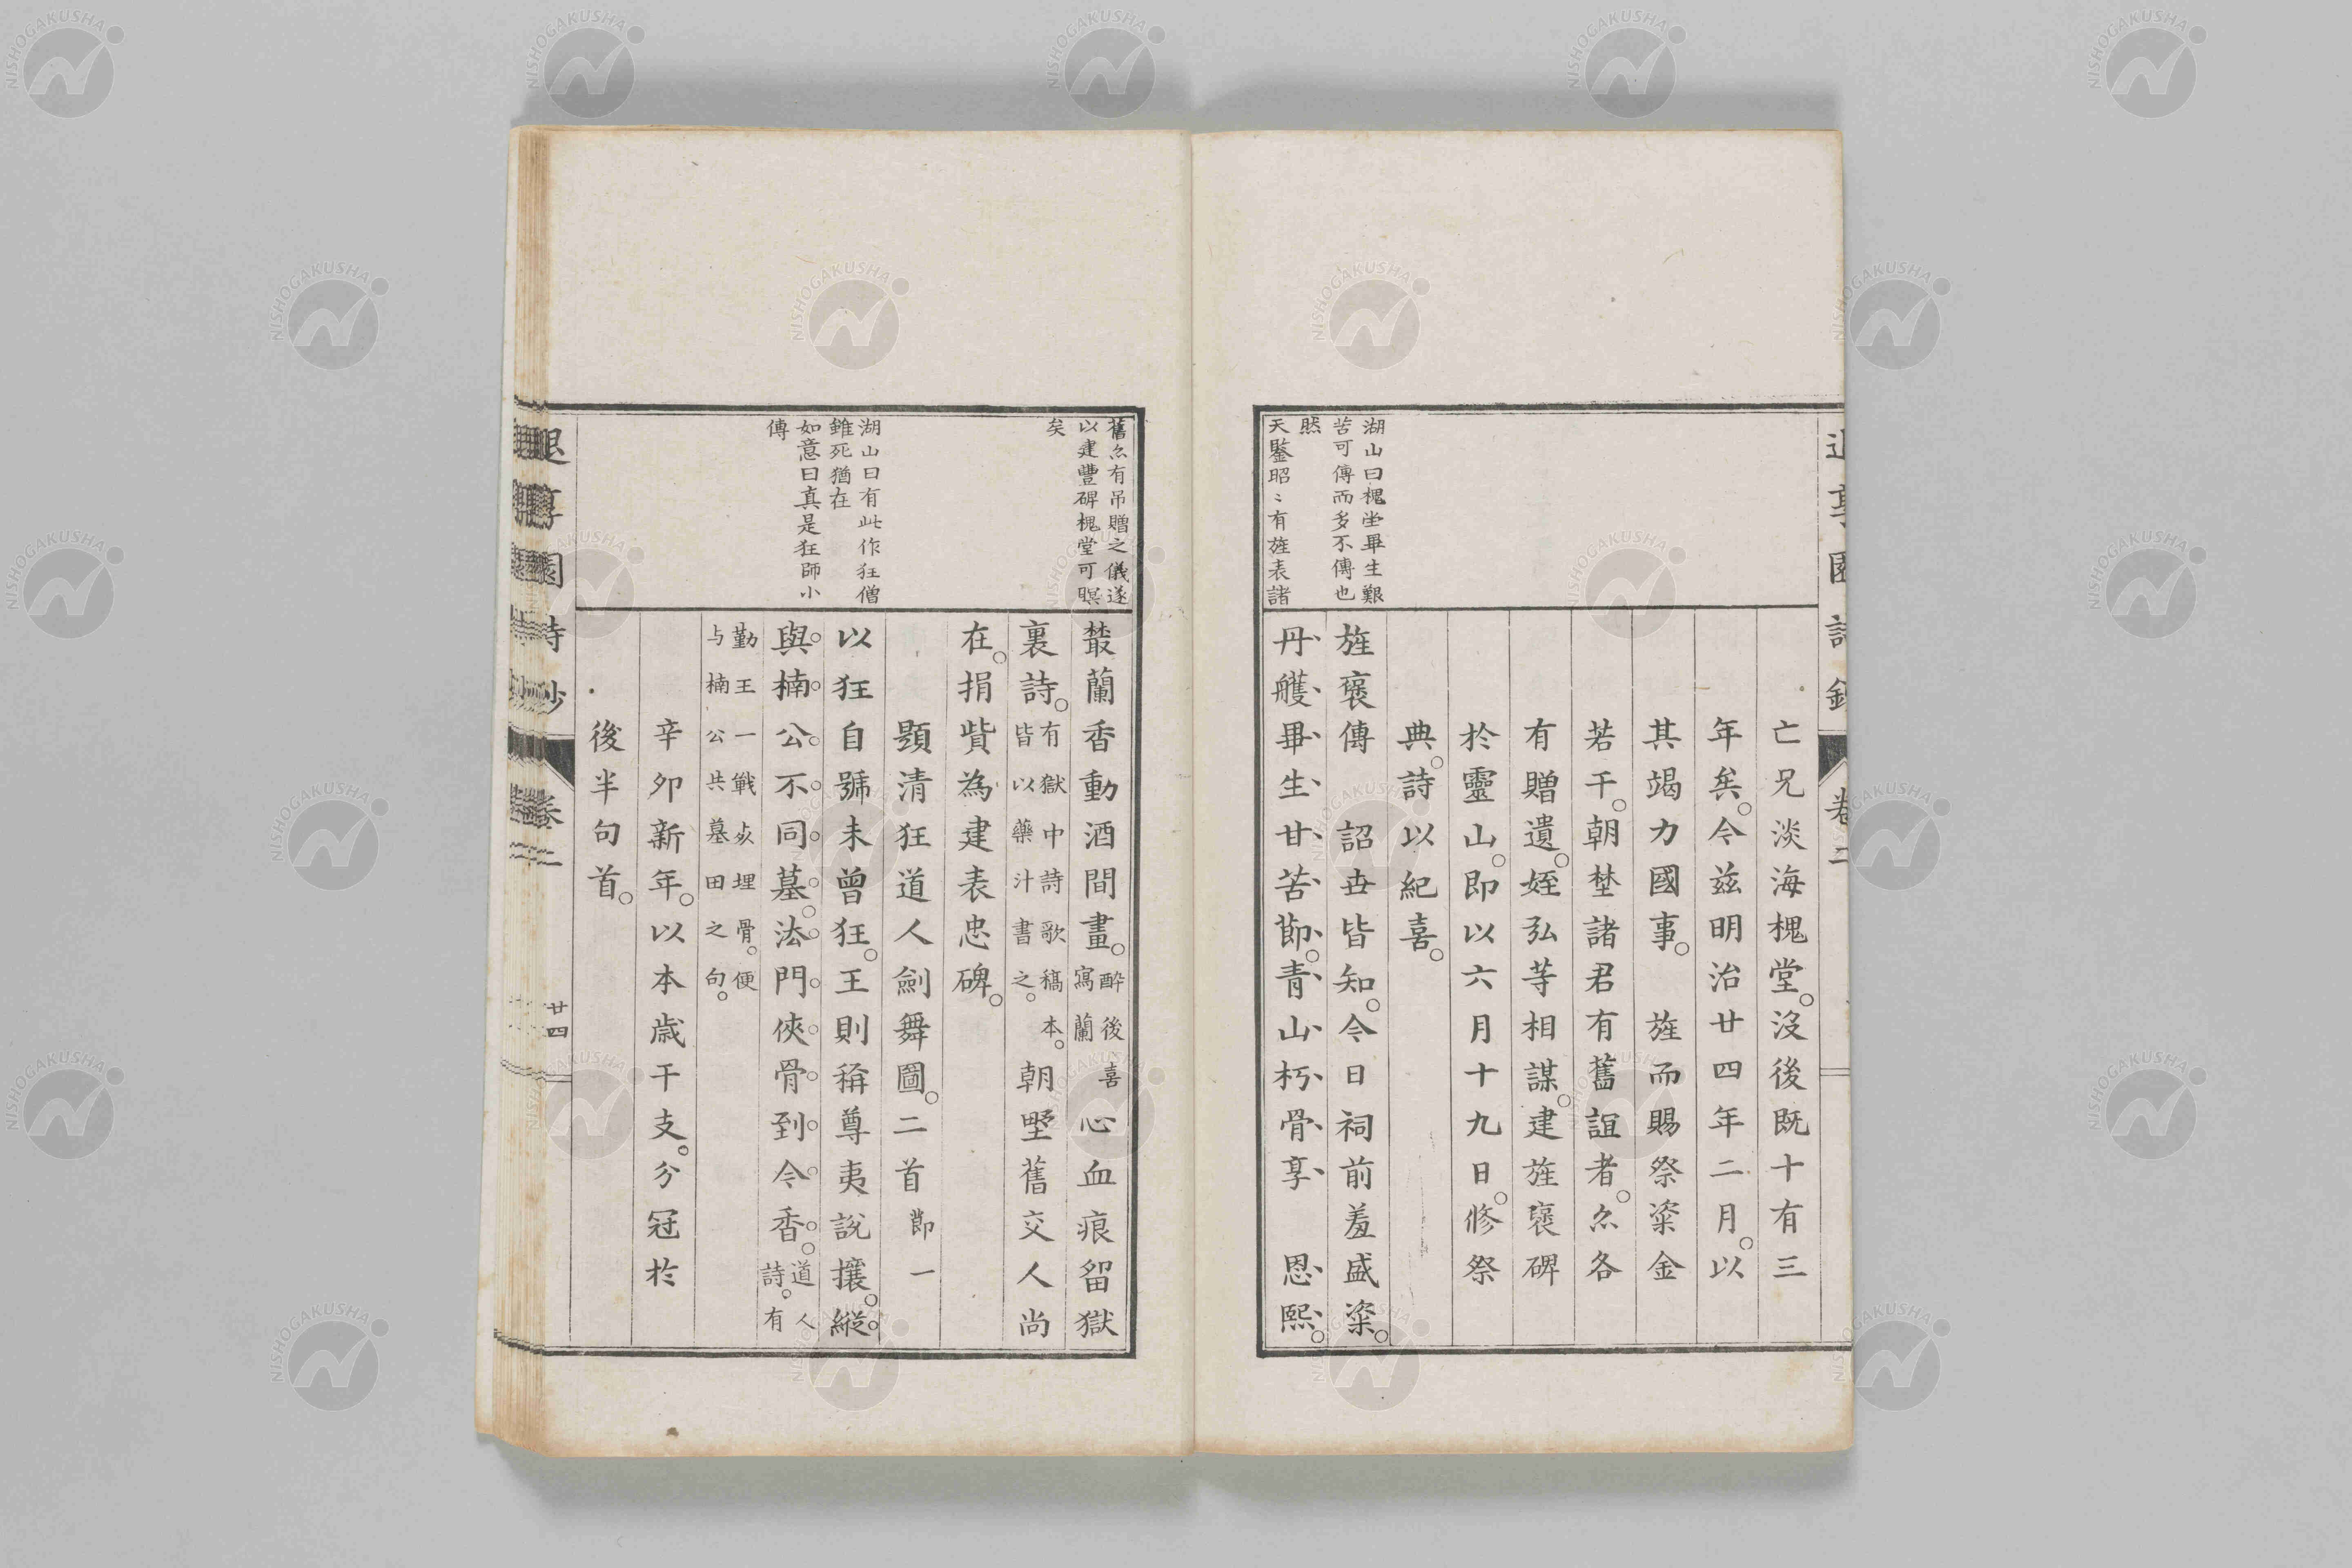 亡兄淡海槐堂。沒後既十有三
年矣。今茲明治廿四年二月。以
其竭力國事。 旌而賜祭粢金
若干。朝埜諸君有舊誼者。亦各
有贈遺。姪弘等相謀。建旌襃碑
於靈山。即以六月十九日。修祭
典。詩以紀喜。
旌襃傳 詔世皆知。今日祠前羞盛粢。
丹雘畢生甘苦節。青山朽骨享 恩熙。
湖山曰槐堂畢生艱
苦可傳而多不傳也
然
天鑒昭〻有旌表諸
卷二
舊亦有吊贈之儀遂
以建豐碑槐堂可瞑
矣
叢蘭香動酒間畫。醉後喜寫蘭心血痕留獄
裏詩。有獄中詩歌稿本。皆以藥汁書之。朝埜舊交人尚
在。捐貲為建表忠碑。
題清狂道人劍舞圖。二首節一
以狂自號未曾狂。王則稱尊夷說攘。縱
與楠公不同墓。法門俠骨到今香。道人詩。有
勤王一戰〻埋骨。便
与楠公共墓田之句。
湖山曰有此作狂僧
雖死猶在
如意曰真是狂師小
傳
辛卯新年。以本歲干支。分冠於
後半句首。
退享園詩鈔
卷二
廿四
NISHOGAKUSHA